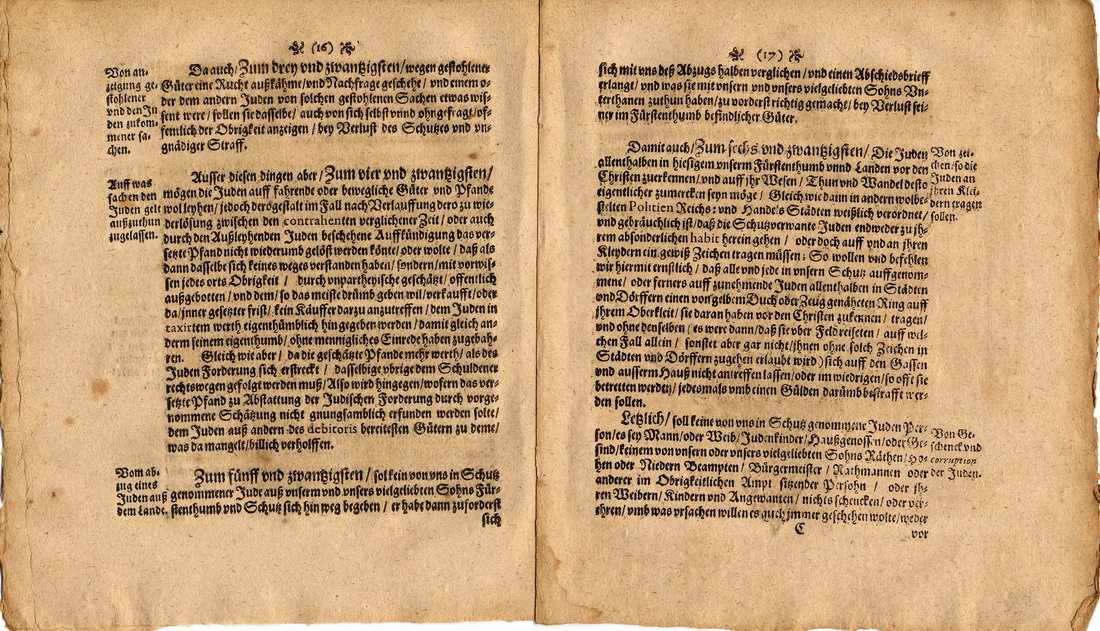 (16)
Von an-
zeigung ge-
stohlener
und den Ju
den zukom-
mener sa-
chen.
Da auch/ Zum drey vnd zwantzigsten/ wegen gestohlener
Güter eine Rucht außkähme/ vnd Nachfrage geschehe/ vnd einem o-
der dem andern Juden von solchen gestohlenen Sachen etwas wis-
send were/ sollen sie dasselbe/ auch von sich selbst vnnd ohngefragt/ öf-
fentlich der Obrigkeit anzeigen/ bey Verlust des Schutzes vnd vn-
gnädiger Straff.
Auff was
sachen den
Juden gelt
außzuthun
zugelassen.
Ausser diesen dingen aber/ Zum vier vnd zwantzigsten/
mögen die Juden auff fahrende oder bewegliche Güter vnd Pfande
wol leyhen/ jedoch dergestalt im Fall nach Verlauffung der zu wie-
derlösung zwischen den contrahenten verglichener Zeit/ oder auch
durch den Außleyhenden Juden beschehene Auffkündigung das ver-
setzte Pfand nicht wiederumb gelöst werden könte/ oder wolte/ daß als
dann dasselbe sich keines weges verstanden haben/ sondern/ mit vorwis-
sen jedes orts Obrigkeit/ durch vnpartheyische geschätzt/ offentlich
außgebotten/ vnd dem/ so das meiste drümb geben wil/ verkaufft/ oder
da/ inner gesetzter frist/ kein Käuffer darzu anzutreffen/ dem Juden in
taxirtem werth eigenthümblich hingegeben werden/ damit gleich an-
derm seinem eigenthumb/ ohne mennigliches Einrede haben zugebah-
ren. Gleich wie aber/ da die geschätzte Pfande mehr werth/ als des
Juden Forderung sich erstreckt/ dasselbige vbrige dem Schuldener
rechtswegen gefolgt werden muß/ Also wird hingegen/ wofern das ver-
setzte Pfand zu Abstattung der Judischen Forderung durch vorge-
nommene Schätzung nicht gnungsamblich erfunden werden solte/
dem Juden auß andern des debitoris bereitesten Gütern zu deme/
was da mangelt/ billich verholffen.
Vom ab-
zug eines
Juden auß
dem Lande.
Zum fünff vnd zwantzigsten/ sol kein von vns in Schutz
genommener Jude auß vnserm vnd vnsers vielgeliebten Sohns Für-
stenthumb vnd Schutz sich hinweg begeben/ er habe dann zuforderst
sich
(17)
sich mit vns deß Abzugs halben verglichen/ vnd einen Abschiedsbrieff
erlangt/ vnd was sie mit vnsern vnd vnsers vielgeliebten Sohns Vn-
terthanen zuthun haben/ zuvorderst richtig gemacht/ bey Verlust sei-
ner im Fürstenthumb befindlicher Güter.
Damit auch/ Zum sechs vnd zwantzigsten/ Die Juden
allenthalben in hiesigem vnserm Fürstenthumb vnnd Landen vor den
Christen zuerkennen/ vnd auff jhr Wesen/ Thun vnd Wandel desto
eigentlicher zumercken seyn möge/ Gleich wie dann in andern wolbe-
stelten Politien Reichs: vnd Handels Städten weißlich verordnet/
vnd gebräuchlich ist/ daß die Schutzverwante Juden endweder zu jh-
rem absonderlichen habit herein gehen/ oder doch auff vnd an jhren
Kleydern ein gewiß Zeichen tragen müssen: So wollen vnd befehlen
wir hiermit ernstlich/ daß alle vnd jede in vnsern Schutz auffgenom-
mene/ oder ferners auff zunehmende Juden allenthalben in Städten
vnd Dörffern einen von gelbem Duch oder Zeug genäheten Ring auff
jhrem Oberkleit/ sie daran haben vor den Christen zukennen/ tragen/
vnd ohne denselben/ (es were dann/ daß sie vber Feld reiseten/ auff wel-
chen Fall allein/ sonstet aber gar nicht/ jhnen ohne solch Zeichen in
Städten vnd Dörffern zugehen erlaubt wird) sich auff den Gassen
vnd ausserm Hauß nicht antreffen lassen/ oder im wiedrigen/ so offt sie
betretten werden/ jedesmals vmb einen Gülden darümb bestrafft wer-
den sollen.
Von zei-
chen/ so die
Juden an
jhren Klei-
dern tragen
sollen.
Letzlich/ soll keine von vns in Schutz genommene Juden Per-
son/ es sey Mann/ oder Weib/ Judenkinder/ Haußgenossen/ oder Ge-
sind/ keinem von vnsern oder vnsers vielgeliebten Sohns Räthen/ Ho-
hen oder Niedern Beampten/ Bürgermeister/ Rathmannen oder
anderer im Obrigkeitlichen Ampt sitzender Persohn/ oder jh-
ren Weibern/ Kindern vnd Angewanten/ nichts schencken/ oder ver-
ehren/ vmb was vrsachen willen es auch jmmer geschehen wolte/ weder
Von Ge-
schenck vnd
corruption
der Juden.
C
vor